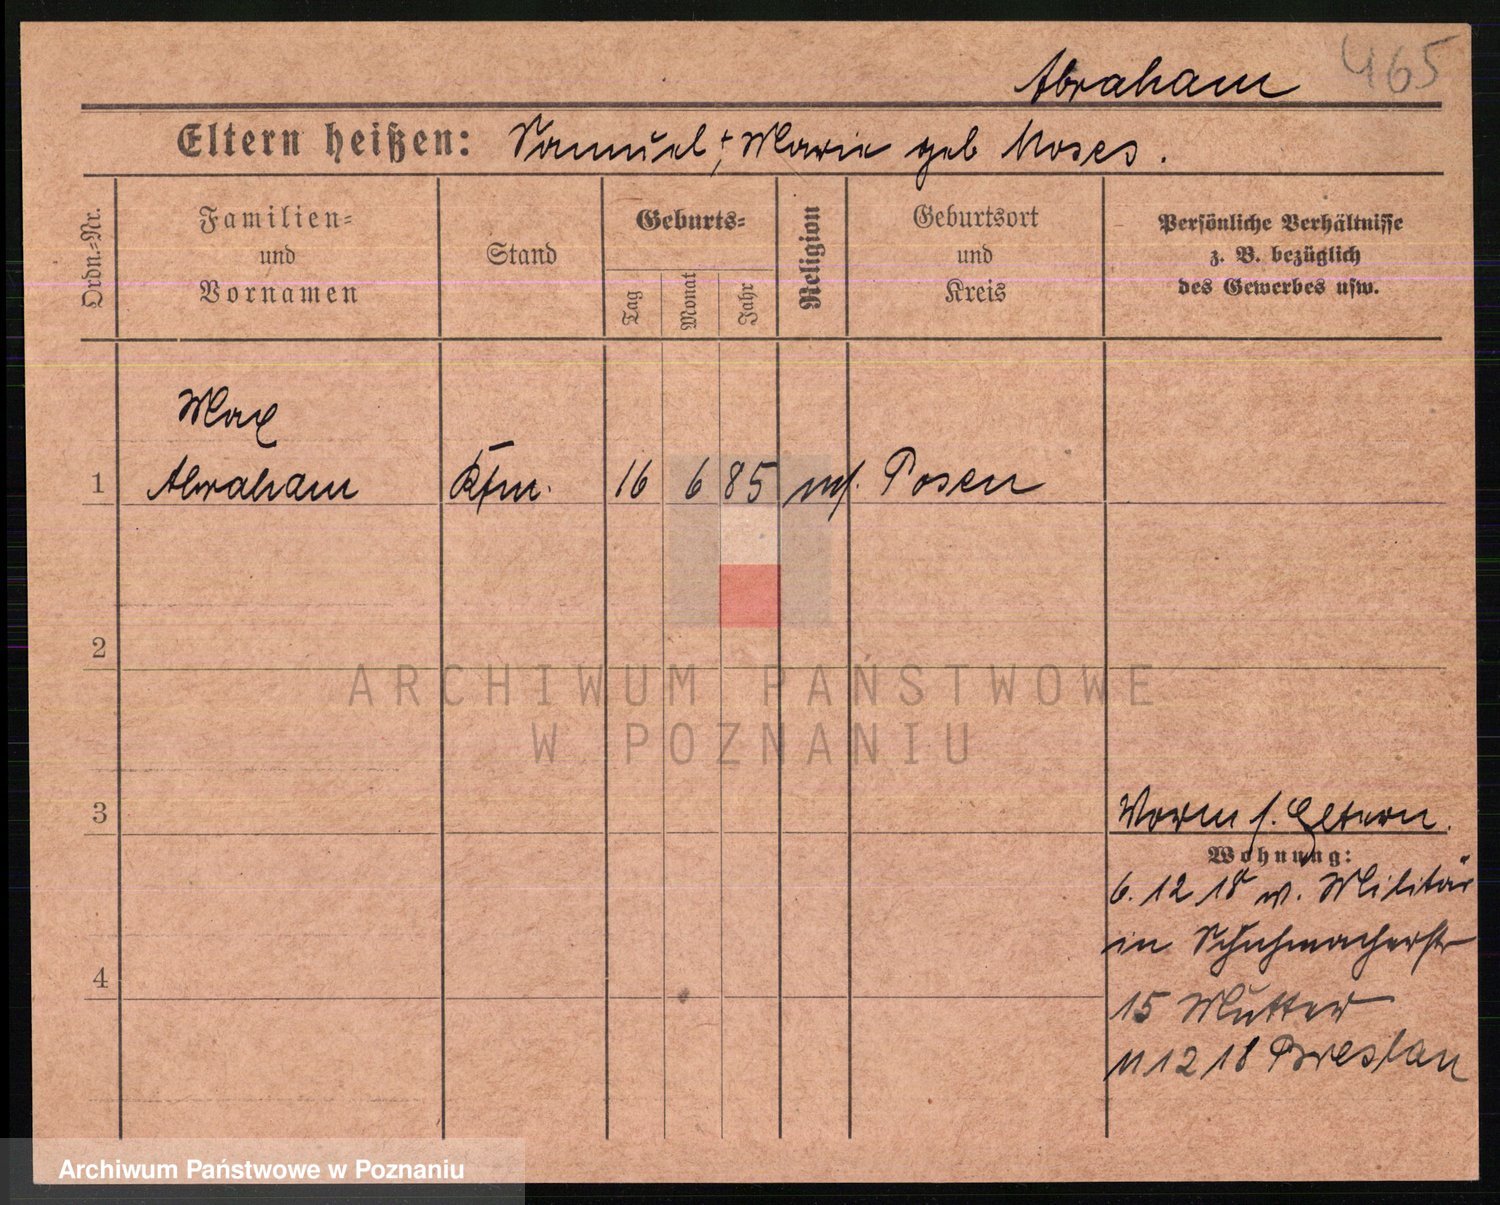 Abraham 465
Eltern heißen: Samuel †, Marie geb Moses.
Ordn.=Nr.
Familien=
und
Vornamen
Stand
Geburts=
Tag
Monat
Jahr
Religion
Geburtsort
und
Kreis
Persönliche Verhältnisse
z. B. bezüglich
des Gewerbes usw.
Max
1 Abraham Kfm. 16 6 85 mos. Posen
2
3
4
Vorm s. Eltern.
Wohnung:
6. 12 18 v. Militär
in Schuhmacherstr
15 Mutter
11 12 18 Breslau
ARCHIWUM PAŃSTWOWE
W POZNANIU
Archiwum Państwowe w Poznaniu